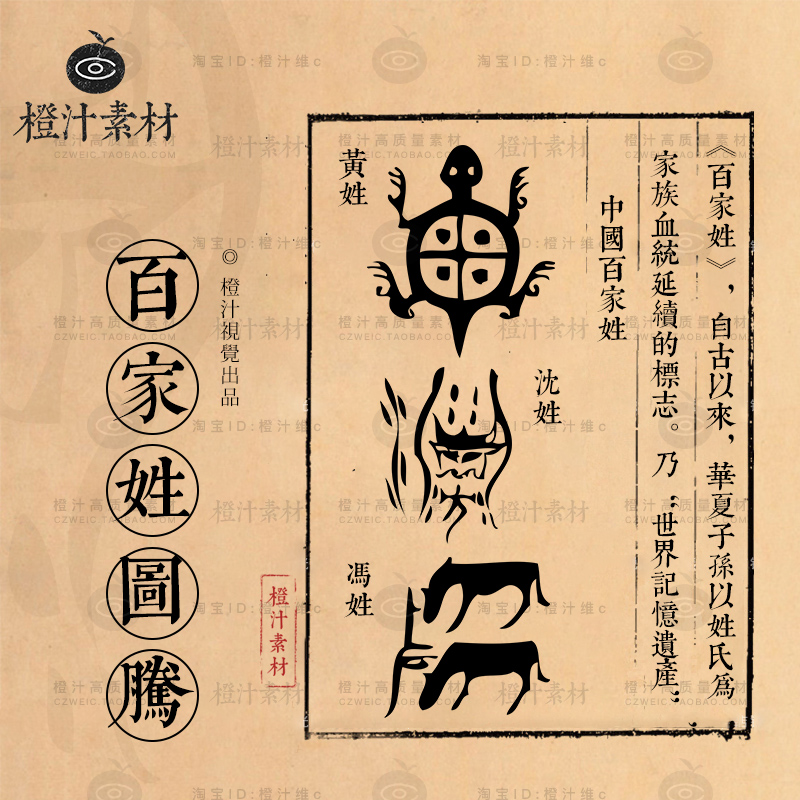 橙汁素材
百家姓圖騰
◎橙汁視覺出品
橙汁素材
《百家姓》，自古以來，華夏子孫以姓氏爲
家族血統延續的標志。乃“世界記憶遺產”
中國百家姓
黃姓
沈姓
馮姓
淘宝ID:橙汁维c
橙汁高质量素材
CZWEIC.TAOBAO.COM
橙汁素材